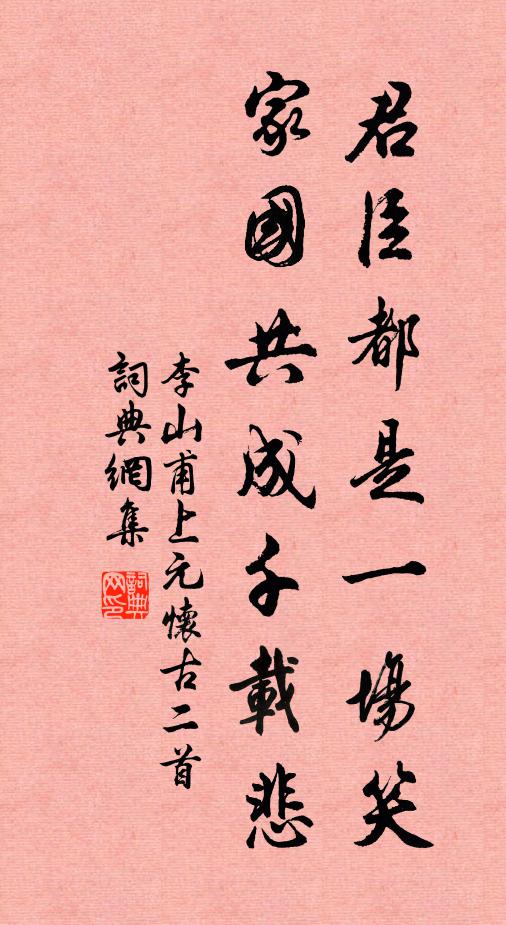 君臣都是一場笑
家國共成千載悲
李山甫上元懷古二首
詞典網集
詞典網印